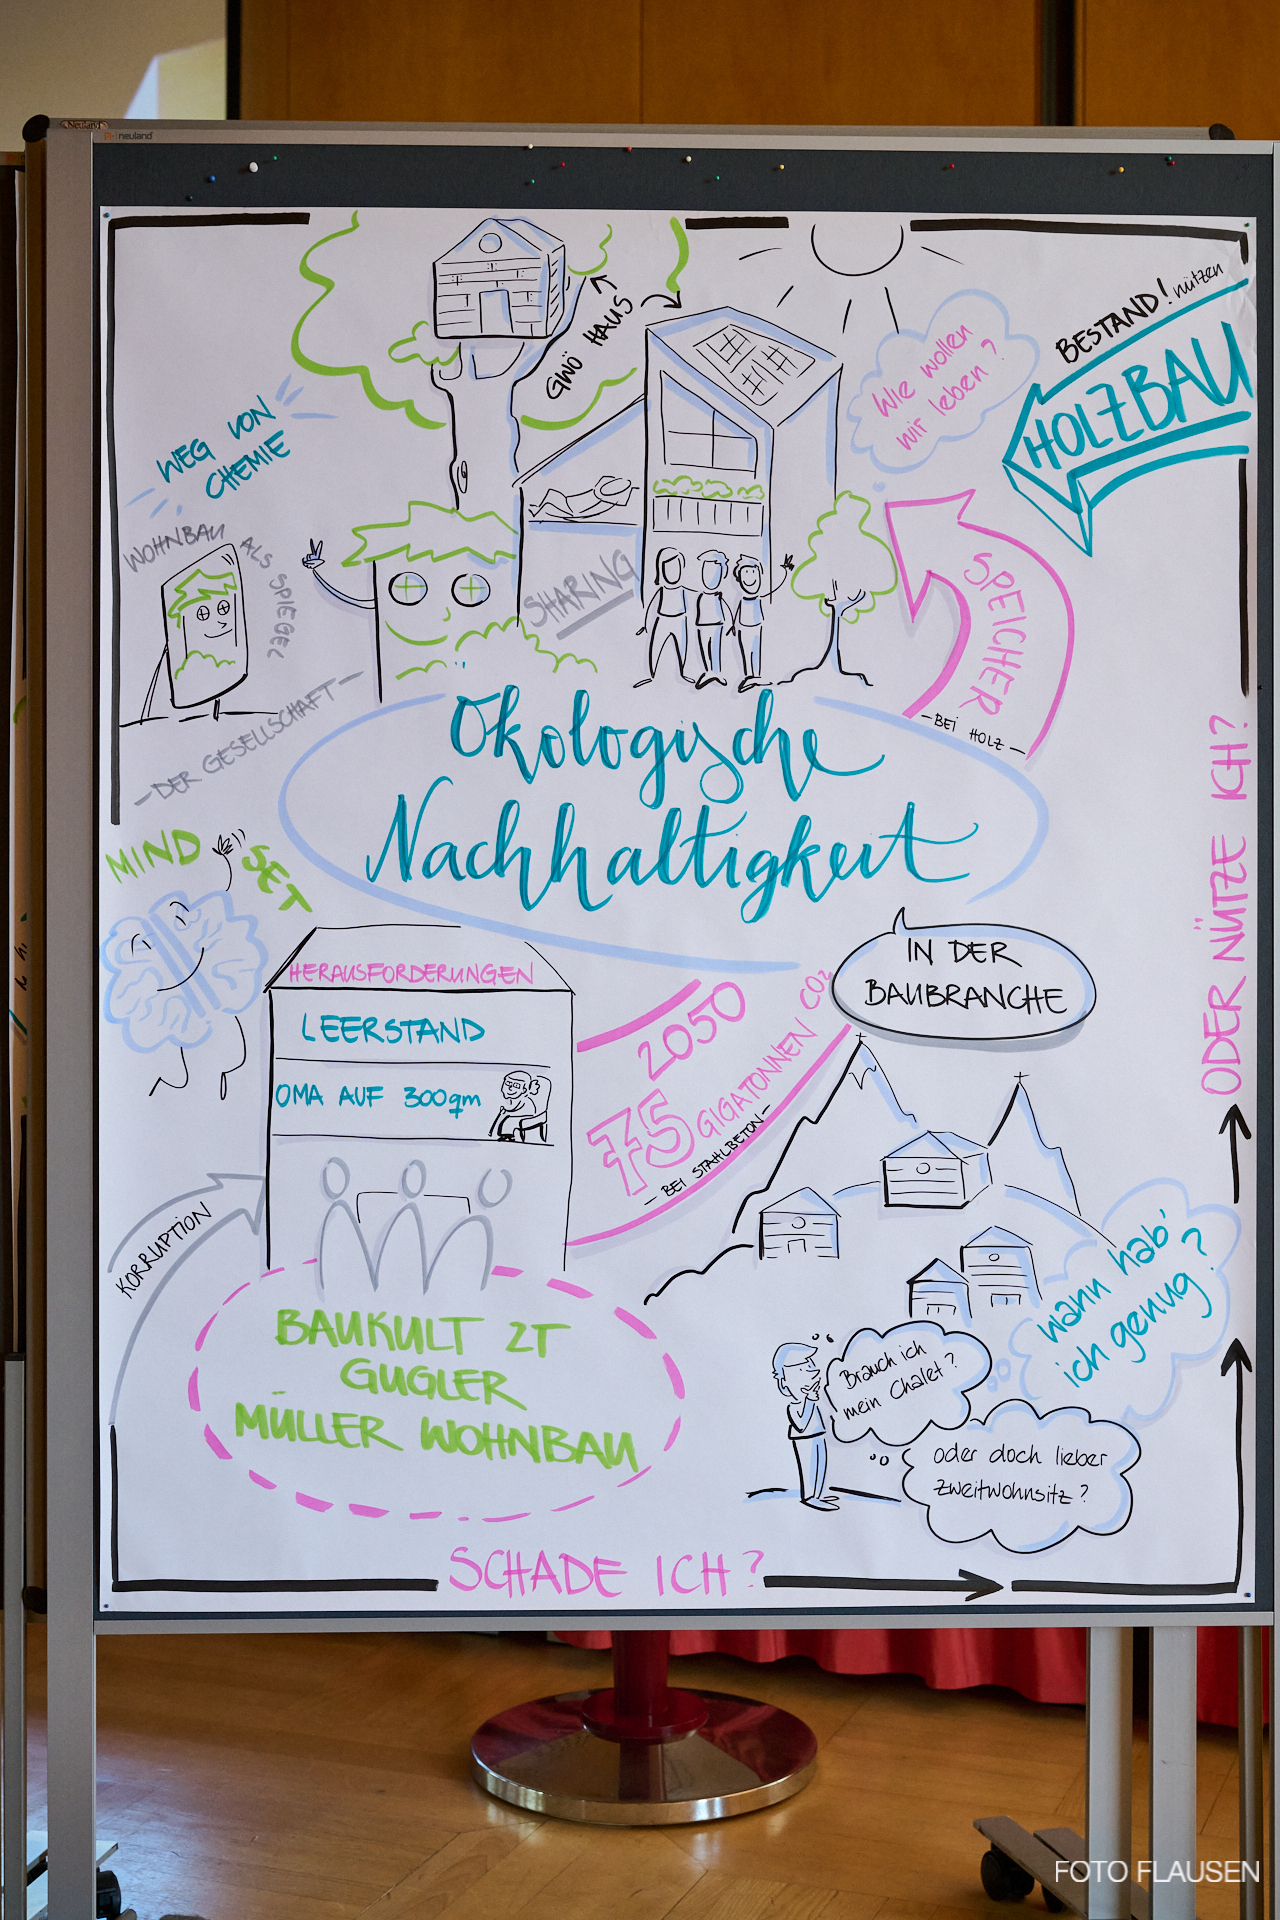 Neuland
neuland
BESTAND! nützen
HOLZBAU
GWÖ HAUS
Wie wollen
wir leben?
WEG VON
CHEMIE
WOHNBAU ALS SPIEGEL
- DER GESELLSCHAFT -
SHARING
SPEICHER
- BEI HOLZ -
Ökologische
Nachhaltigkeit
IN DER
BAUBRANCHE
MIND SET
HERAUSFORDERUNGEN
LEERSTAND
OMA AUF 300qm
2050
75 GIGATONNEN CO2
- BEI STAHLBETON -
KORRUPTION
BAUKULT 2T
GUGLER
MÜLLER WOHNBAU
wann hab'
ich genug?
Brauch ich
mein Chalet?
oder doch lieber
Zweitwohnsitz?
SCHADE ICH?
ODER NÜTZE ICH?
FOTO FLAUSEN